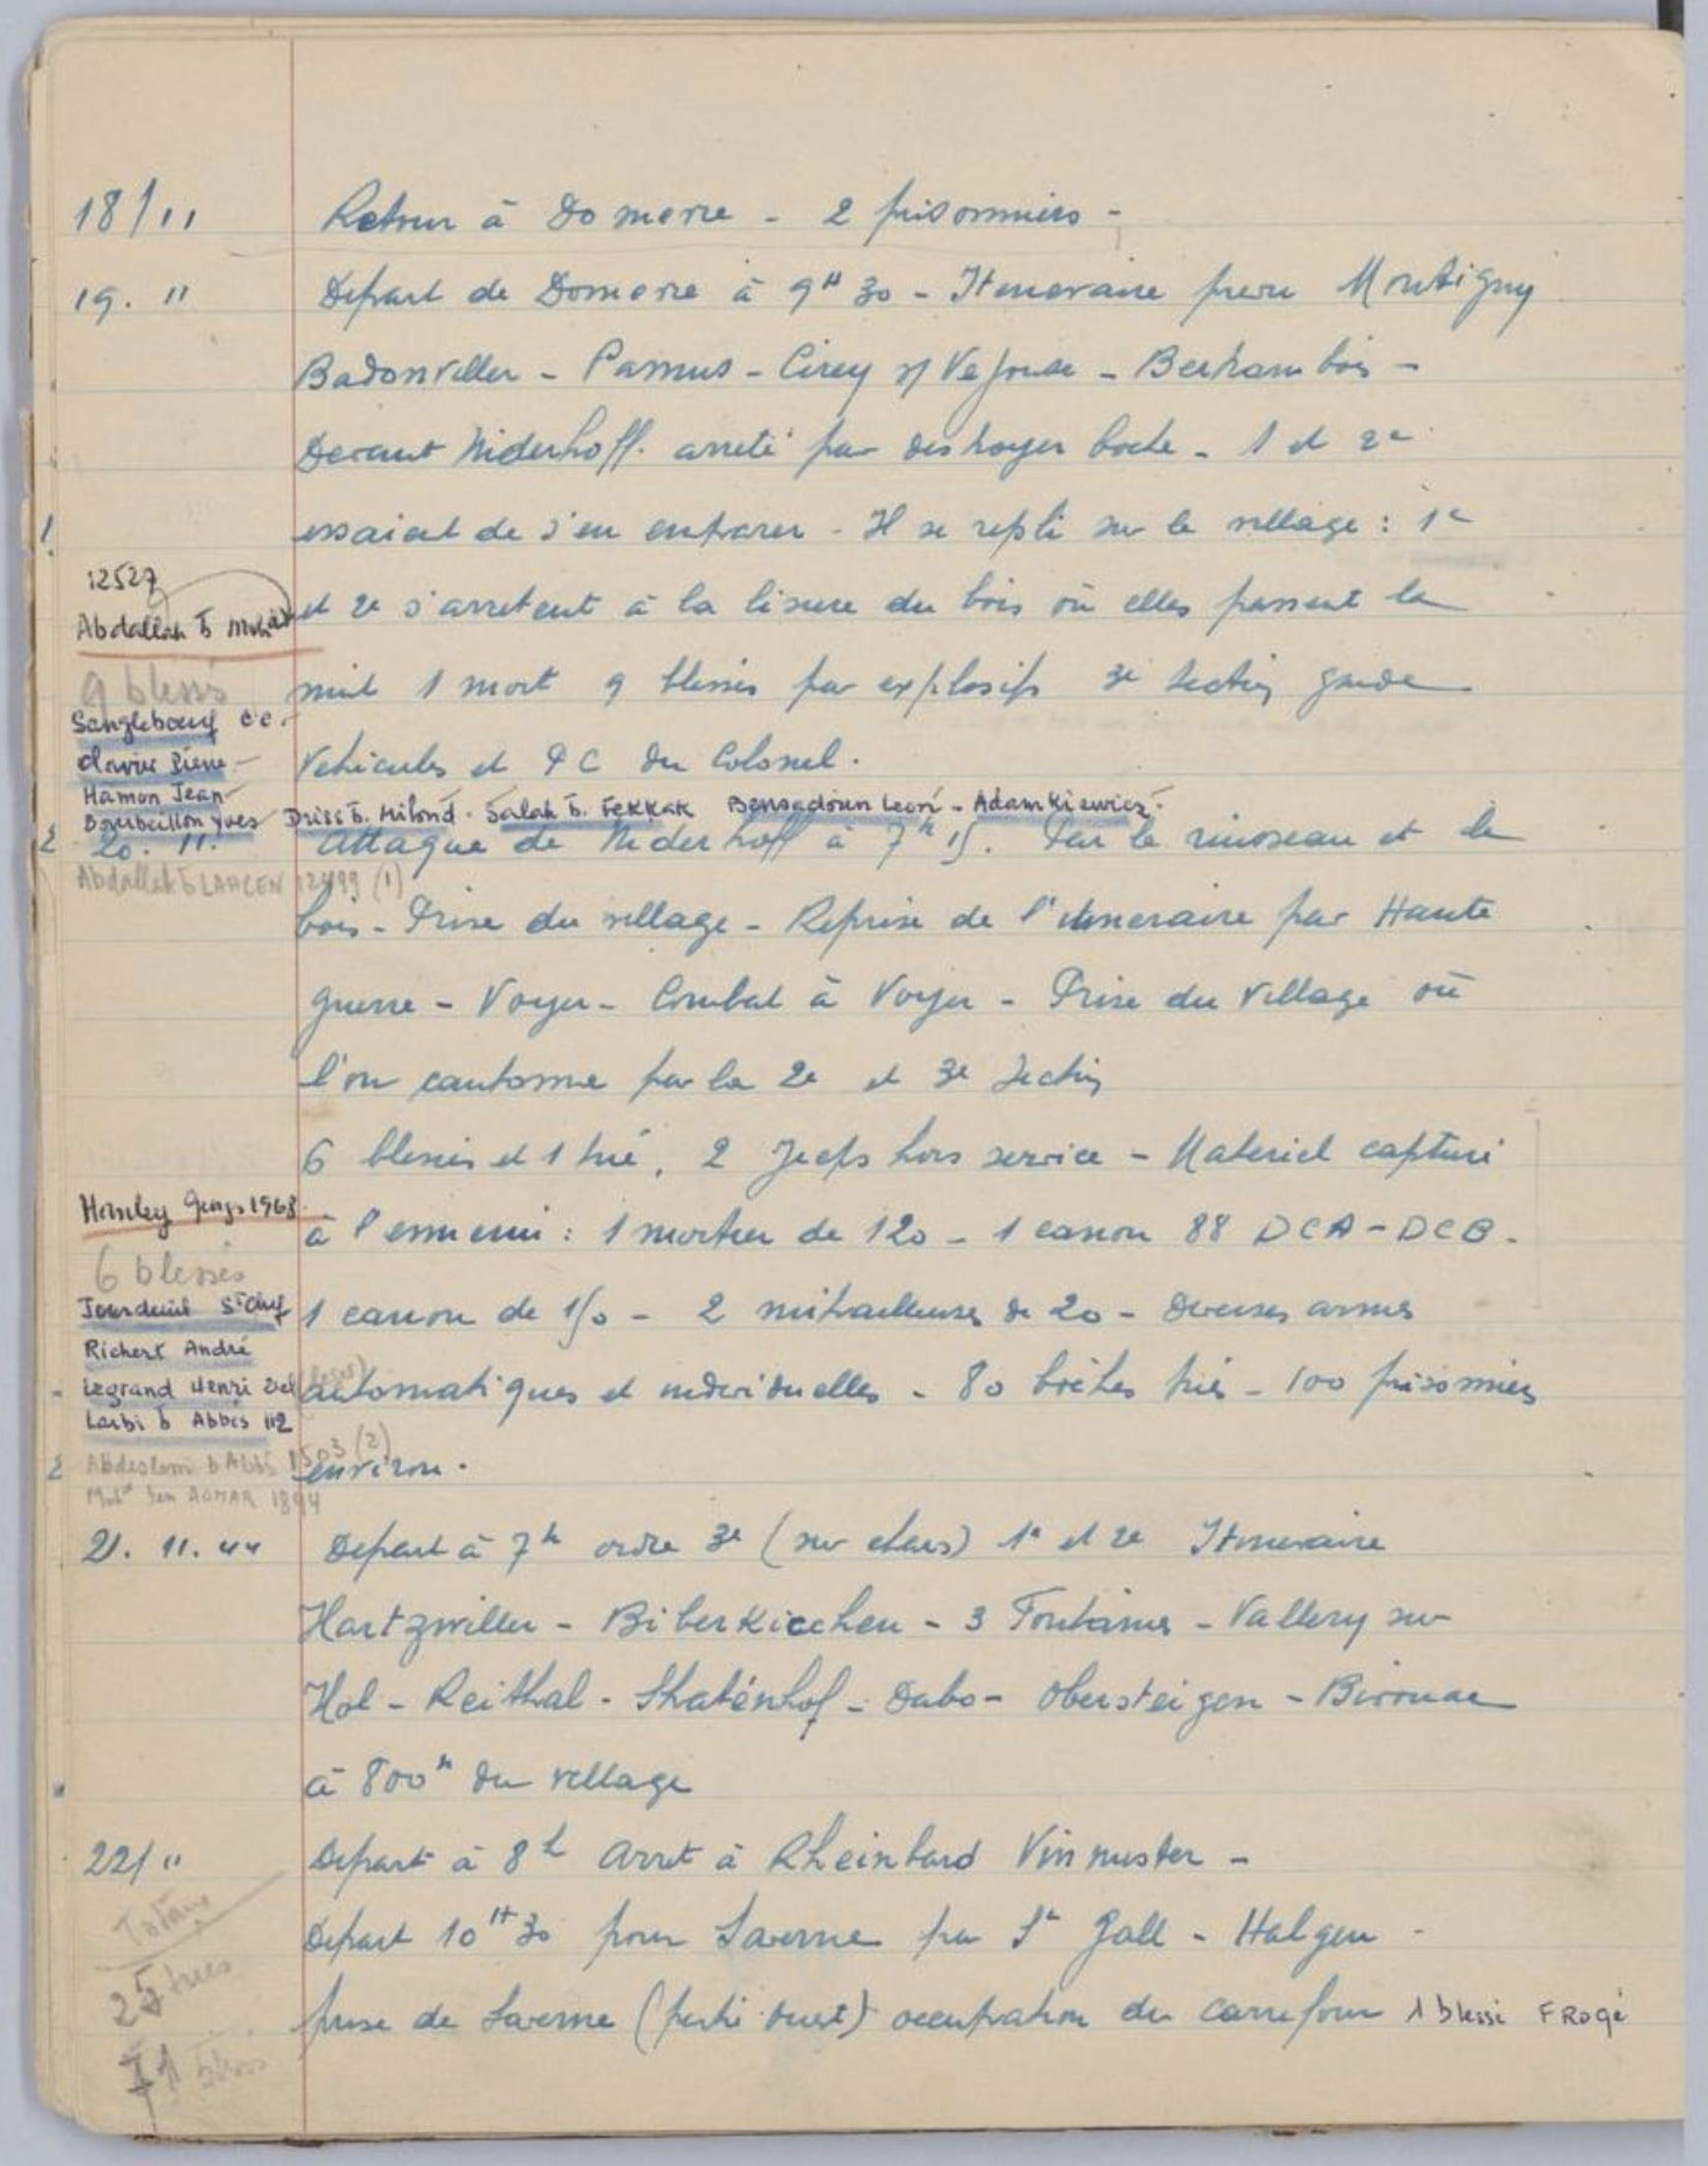 18/11 Retour à Domevre - 2 prisonniers -
19. 11 Depart de Domevre à 9H30 - Itineraire Montigny
Badonviller - Parmus - Cirey s/ Vezouse - Bertrambois -
Devant Niderhoff. arreté par boche - 1 et 2e
1. essaient de s'en emparer - Il se repli sur le village : 1e
12527
Abdallah B
et 2e s'arretent à la lisiere du bois où elles passent la
nuit 1 mort 9 blessés par explosifs 3e section garde
9 blessés
Sanglebœuf cc.
Vehicules et PC du Colonel.
Clavier Pierre -
Hamon Jean -
Bourbeillon Yves Driss B. Miloud - Salah B. Fekkak Bensadoun Leon - Adamkiewicz -
2 20. 11. Attaque de Niderhoff à 7h15. Par le ruisseau et le
Abdallah B LAHCEN 12499 (1)
bois - Prise du village - Reprise de l'itineraire par Haute
guerre - Voyer - Combat à Voyer - Prise du village où
l'on cantonne par la 2e et 3e Section
6 blessés et 1 tué, 2 Jeeps hors service - Materiel capturé
Hanley Georges 1968
à l'ennemi : 1 mortier de 120 - 1 canon 88 DCA - DCB -
6 blessés
Jourdeuil St Chef
1 canon de 150 - 2 mitrailleuses de 20 - Diverses armes
Richert André
Legrand Henri (leger)
automatiques et individuelles - 80 bôches tués - 100 prisonniers
Larbi B Abbès 112
2 Abdeslam b Abbès 1503 (2)
environ.
Moh ben AOMAR 1894
21. 11. 44 Depart à 7h ordre 3e (sur chars) 1e et 2e Itineraire
Hartzwiller - Biberkicchen - 3 Fontaines - Vallery sur
Hol - Reithal - Shaténhof - Dabo - Obersteigen - Bivouac
à 800m du village
22/ 11 Depart à 8h Arret à Rheinhard Vinmuster -
Depart 10H30 pour Saverne par St Gall - Halgen -
prise de Saverne (partie ouest) occupation du carrefour 1 blessé FRogé
Totaux
25 tués
71 bléss